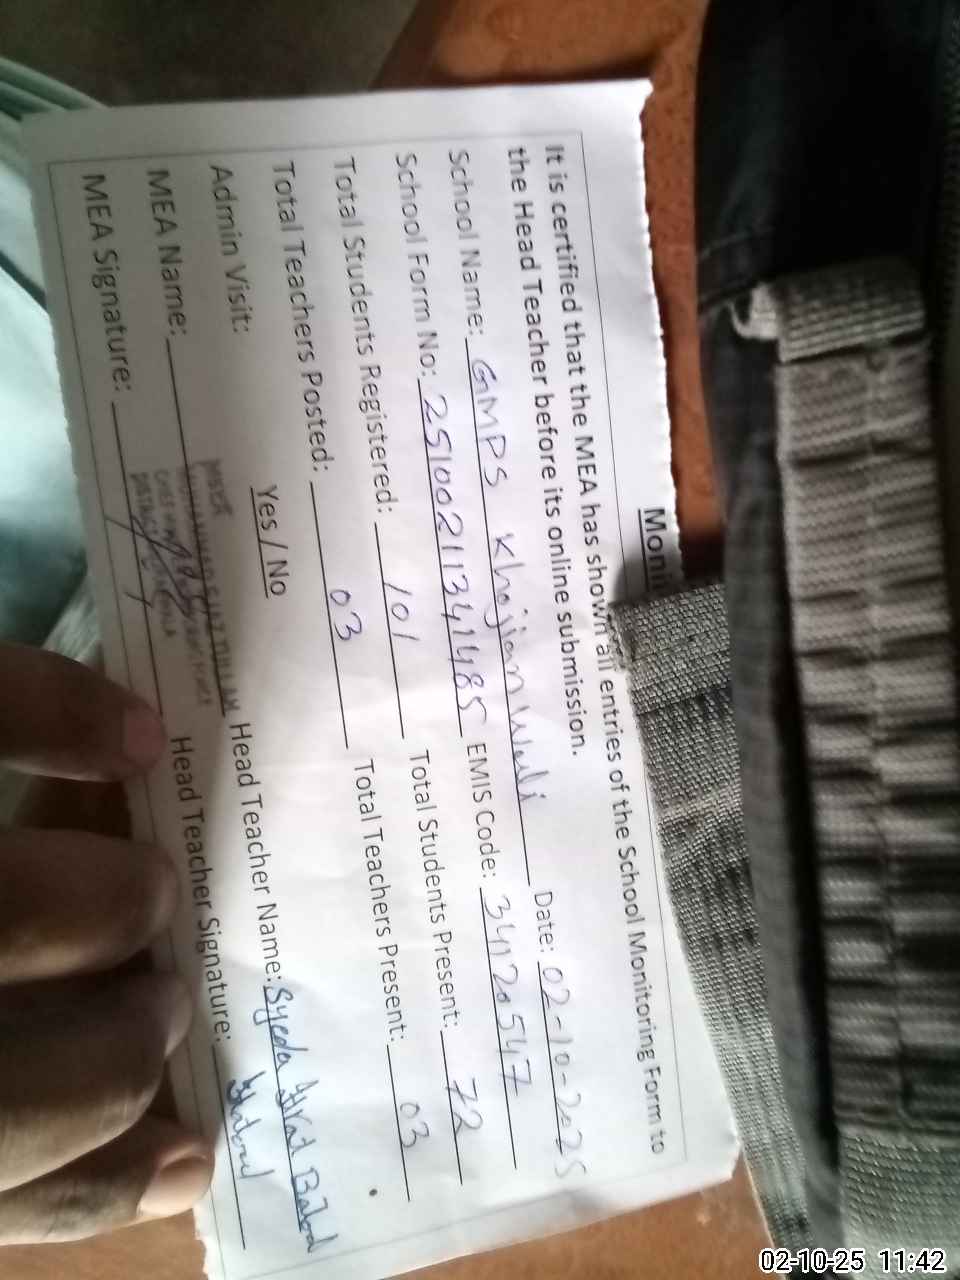 Moni
It is certified that the MEA has shown all entries of the School Monitoring Form to
the Head Teacher before its online submission.
School Name: GMPS Khojianwali Date: 02-10-2025
School Form No: 25100211341485 EMIS Code: 34120547
Total Students Registered: 101 Total Students Present: 72
Total Teachers Posted: 03 Total Teachers Present: 03
Admin Visit: Yes / No
MEA Name: Head Teacher Name: Syeda
MEA Signature: Head Teacher Signature:
02-10-25 11:42